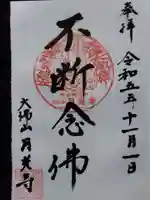 奉拝
令和五年十一月一日
不断念佛
大佛山月光寺